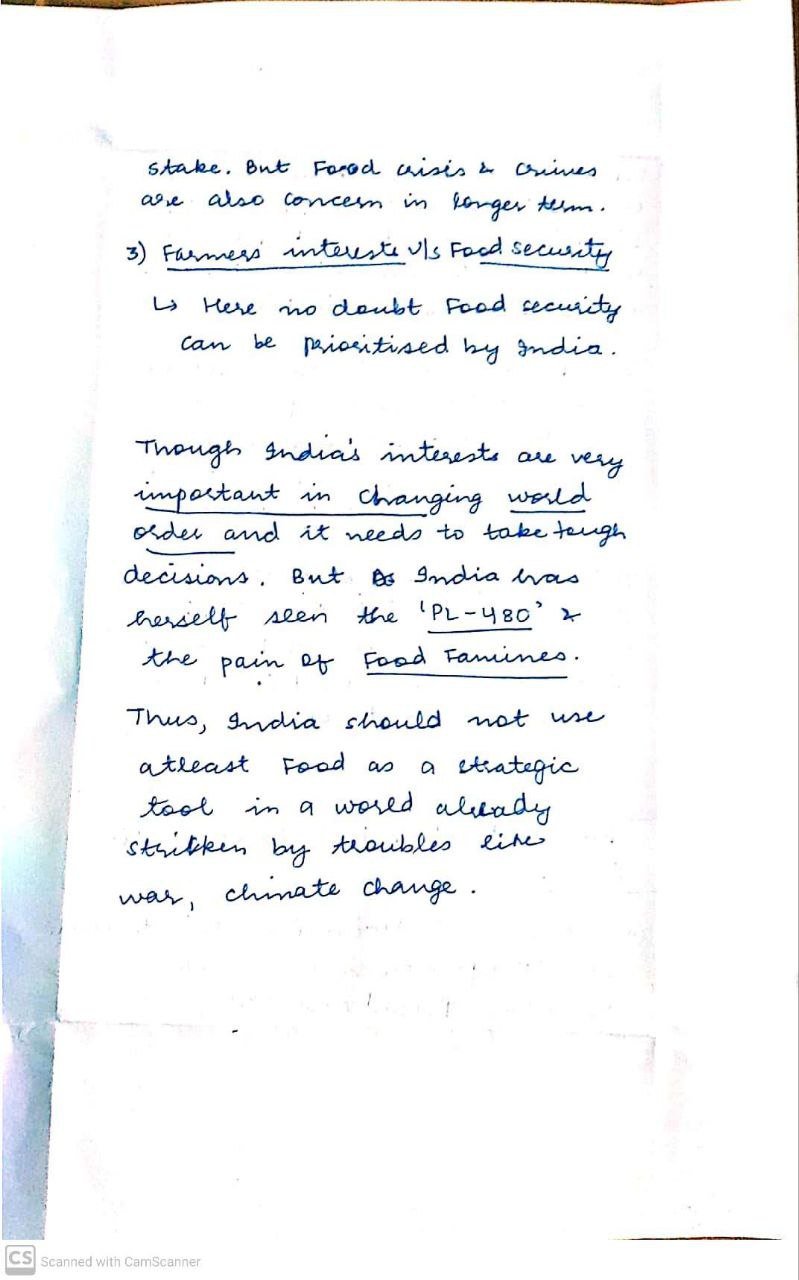 stake. But Food crisis & crimes
are also concern in longer term.
3) Farmers' interests v/s Food security
↳ Here no doubt Food security
can be prioritised by India.
Though India's interests are very
important in changing world
order and it needs to take tough
decisions. But India has
herself seen the 'PL-480' &
the pain of Food Famines.
Thus, India should not use
atleast Food as a strategic
tool in a world already
striken by troubles like
war, climate change.
CS Scanned with CamScanner